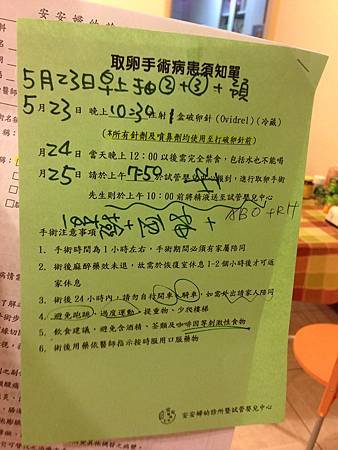 安安婦幼診
取卵手術病患須知單
5月23日早上抽②+③+顏
5月23日 晚上10:30注射1盒破卵針(Ovidrel)(冷藏)
(*所有針劑及噴鼻劑均使用至打破卵針前)
月24日 當天晚上 12:00 以後需完全禁食，包括水也不能喝
月25日 請於上午7:50於試管嬰兒中心報到，進行取卵手術
先生則於上午10:00前將精液送至試管嬰兒中心
ABO+RH
手術注意事項
1. 手術時間為 1 小時左右，手術期間必須有家屬陪同
2. 術後麻醉藥效未退，故需於恢復室休息 1-2 個小時後才可返
家休息
3. 術後 24 小時內，請勿自行開車、騎車，如需外出請家人陪同
4. 避免跑跳、過度運動、提重物、少爬樓梯
5. 飲食建議，避免含酒精、茶類及咖啡因等刺激性食物
6. 術後用藥依醫師指示按時服用口服藥物
安安婦幼診所暨試管嬰兒中心